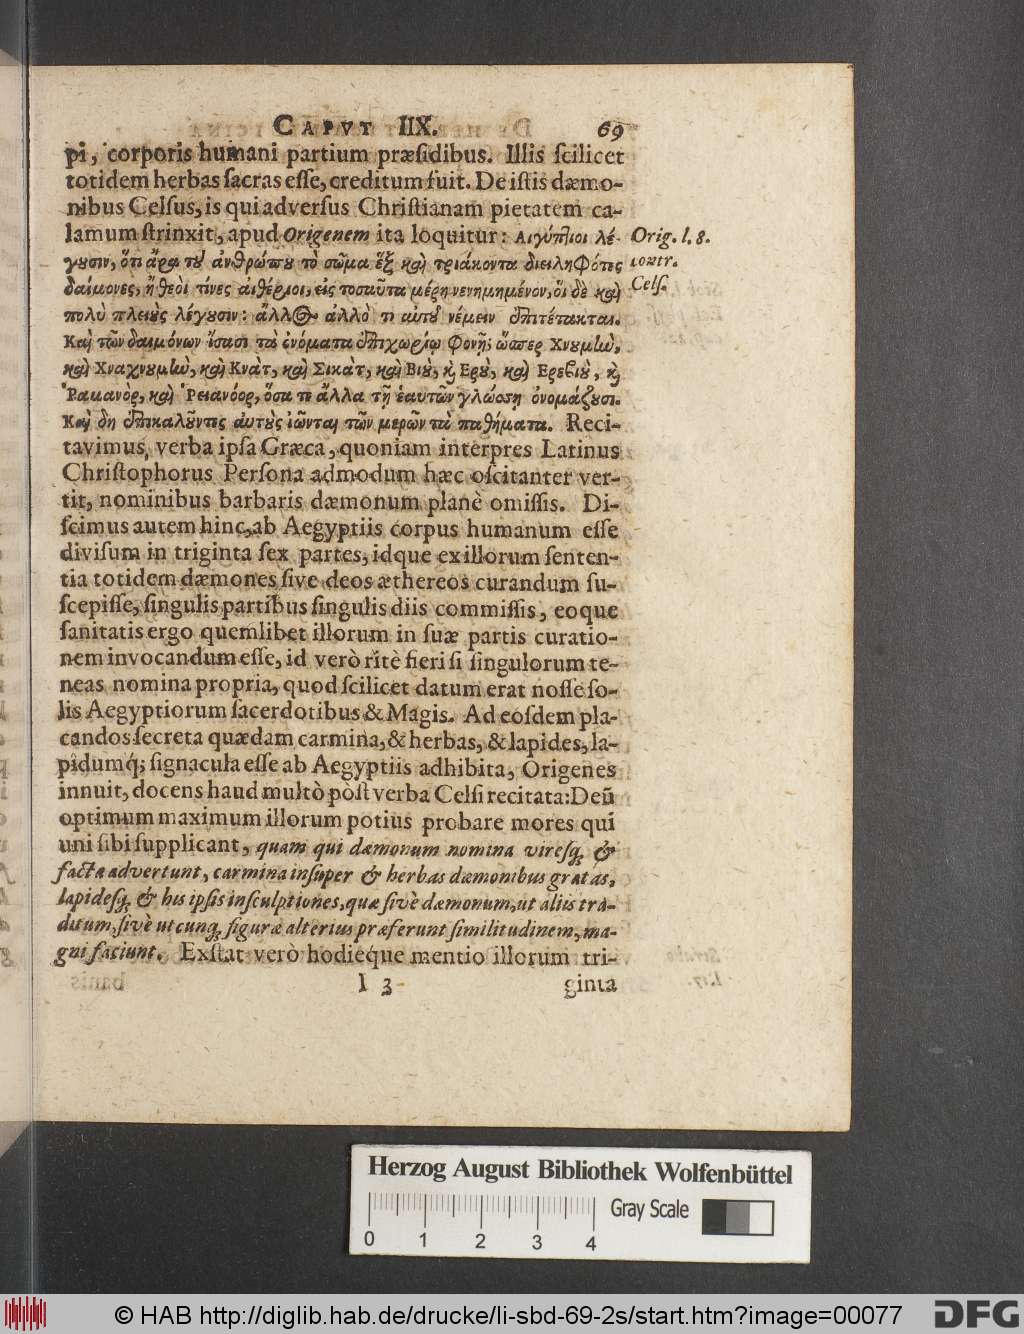 CAPVT IIX. 69
pi, corporis humani partium præsidibus. Illis scilicet
totidem herbas sacras esse, creditum fuit. De istis dæmo-
nibus Celsus, is qui adversus Christianam pietatem ca-
lamum strinxit, apud Origenem ita loquitur: Αιγύπτιοι λέ-
Orig. l. 8.
γουσιν, ὅτι ἄρα τοῦ ἀνθρώπου τὸ σῶμα ἕξ καὶ τριάκοντα διειληφότες
contr.
δαίμονες, ἢ θεοὶ τίνες αἰθέριοι, εἰς τοσαῦτα μέρη νενημημένον, ὁι δὲ καὶ
Cels.
πολὺ πλειοὺς λέγουσιν: ἄλλος ἀλλὸ τι αὐτοῦ νέμειν ἐπιτέτακται.
Καὶ τῶν δαιμόνων ἴσασι τὰ ὀνόματα ἐπιχωρίῳ φονῇ; ὥσπερ Χνουμὴν,
καὶ Χναχνουμὴν, καὶ Κνὰτ, καὶ Σικὰτ, καὶ Βιοὺ, καὶ Εροὺ, καὶ Ερεβιοὺ, καὶ
Ῥαμανὸρ, καὶ Ῥειανόορ, ὅσα τε ἄλλα τῇ ἑαυτῶν γλώσσῃ ὀνομάζουσι.
Καὶ δὴ ἐπικαλοῦντες ἀυτοὺς ἰῶνται τῶν μερῶν τὰ παθήματα. Reci-
tavimus, verba ipsa Græca, quoniam interpres Latinus
Christophorus Persona admodum hæc oscitanter ver-
tit, nominibus barbaris dæmonum planè omissis. Di-
scimus autem hinc, ab Aegyptiis corpus humanum esse
divisum in triginta sex partes, idque ex illorum senten-
tia totidem dæmones sive deos æthereos curandum su-
scepisse, singulis partibus singulis diis commissis, eoque
sanitatis ergo quemlibet illorum in suæ partis curatio-
nem invocandum esse, id verò ritè fieri si singulorum te-
neas nomina propria, quod scilicet datum erat nosse so-
lis Aegyptiorum sacerdotibus & Magis. Ad eosdem pla-
candos secreta quædam carmina, & herbas, & lapides, la-
pidumq́; signacula esse ab Aegyptiis adhibita, Origenes
innuit, docens haud multò post verba Celsi recitata: Deū
optimum maximum illorum potius probare mores qui
uni sibi supplicant, quam qui dæmonum nomina viresq; &
facta advertunt, carmina insuper & herbas dæmonibus gratas,
lapidesq; & his ipsis insculptiones, quæ sivè dæmonum, ut aliis tra-
ditum, sivè utcunq; figuræ alterius præferunt similitudinem, ma-
gni faciunt. Exstat verò hodiéque mentio illorum tri-
I 3 ginta
Herzog August Bibliothek Wolfenbüttel
Gray Scale
0 1 2 3 4
© HAB http://diglib.hab.de/drucke/li-sbd-69-2s/start.htm?image=00077
DFG